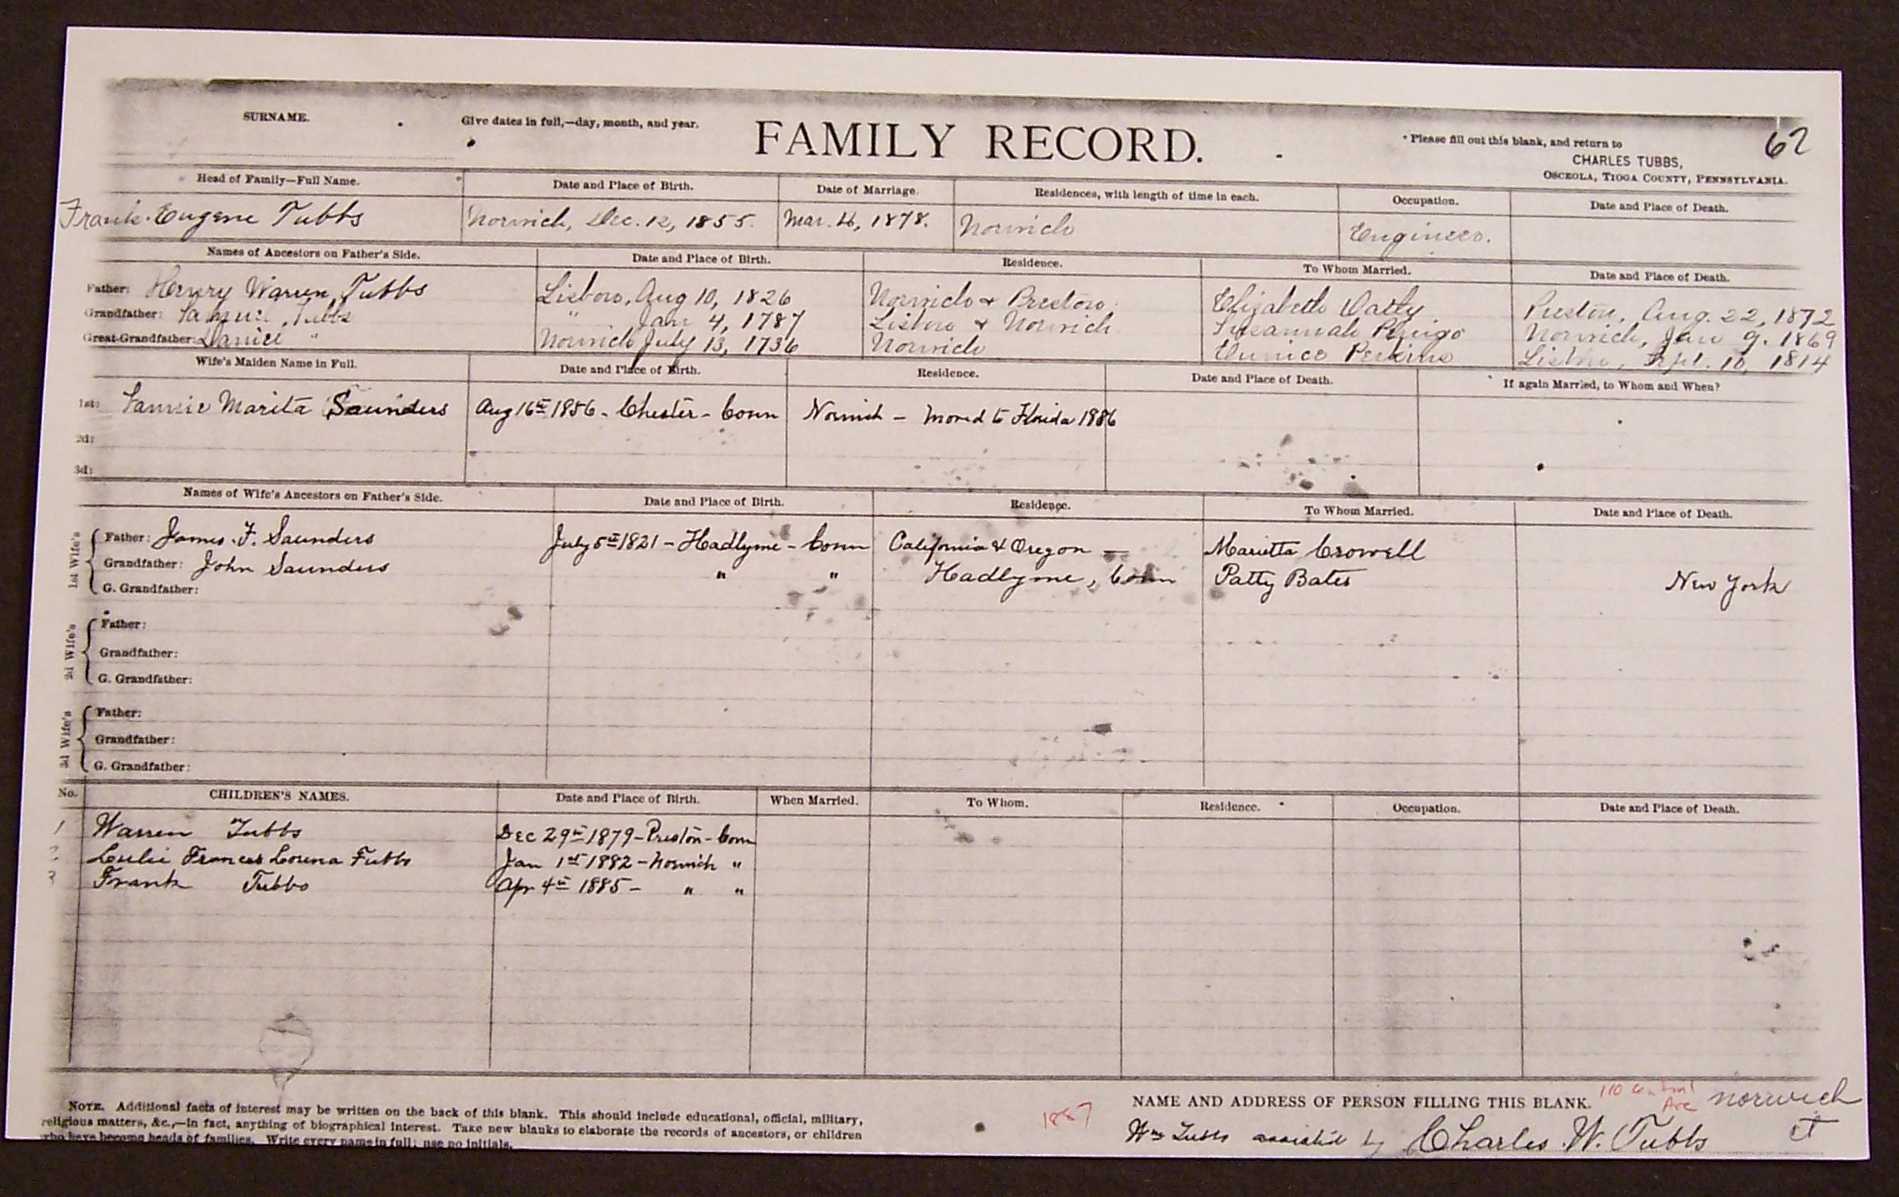 62
SURNAME. Give dates in full,—day, month, and year. FAMILY RECORD. Please fill out this blank, and return to
CHARLES TUBBS,
OSCEOLA, TIOGA COUNTY, PENNSYLVANIA.
Head of Family—Full Name. Date and Place of Birth. Date of Marriage. Residences, with length of time in each. Occupation. Date and Place of Death.
Frank Eugene Tubbs Norwich, Dec. 12, 1855. Mar. 1878. Norwich Engineer.
Names of Ancestors on Father's Side. Date and Place of Birth. Residence. To Whom Married. Date and Place of Death.
Father: Henry Warren Tubbs Lisbon, Aug 10, 1826 Norwich & Preston Elizabeth Preston, Aug. 22, 1872
Grandfather: Samuel Tubbs " Jan 4, 1787 Lisbon & Norwich Susannah Perigo Norwich, Jan 9. 1869
Great-Grandfather: Daniel " Norwich July 13, 1736 Norwich Eunice Perkins Lisbon, Sept. 10, 1814
Wife's Maiden Name in Full. Date and Place of Birth. Residence. Date and Place of Death. If again Married, to Whom and When?
1st: Fannie Marita Saunders Aug 16th 1856 - Chester - Conn Norwich - moved to Florida 1886
2d:
3d:
Names of Wife's Ancestors on Father's Side. Date and Place of Birth. Residence. To Whom Married. Date and Place of Death.
1st Wife's
Father: James F. Saunders July 5th 1821 - Hadlyme - Conn California & Oregon — Marietta Crowell
Grandfather: John Saunders " " Hadlyme, Conn Patty Bates New York
G. Grandfather:
2d Wife's
Father:
Grandfather:
G. Grandfather:
3d Wife's
Father:
Grandfather:
G. Grandfather:
No. CHILDREN'S NAMES. Date and Place of Birth. When Married. To Whom. Residence. Occupation. Date and Place of Death.
1 Warren Tubbs Dec 29th 1879 - Preston - Conn
2 Frances Louna Tubbs Jan 1st 1882 - Norwich "
3 Frank Tubbs Apr 4th 1885 - " "
NOTE. Additional facts of interest may be written on the back of this blank. This should include educational, official, military,
religious matters, &c.,—in fact, anything of biographical interest. Take new blanks to elaborate the records of ancestors, or children
who have become heads of families. Write every name in full; use no initials.
1887
NAME AND ADDRESS OF PERSON FILLING THIS BLANK. 110 Central Ave Norwich
Wm Tubbs assisted by Charles W. Tubbs ct